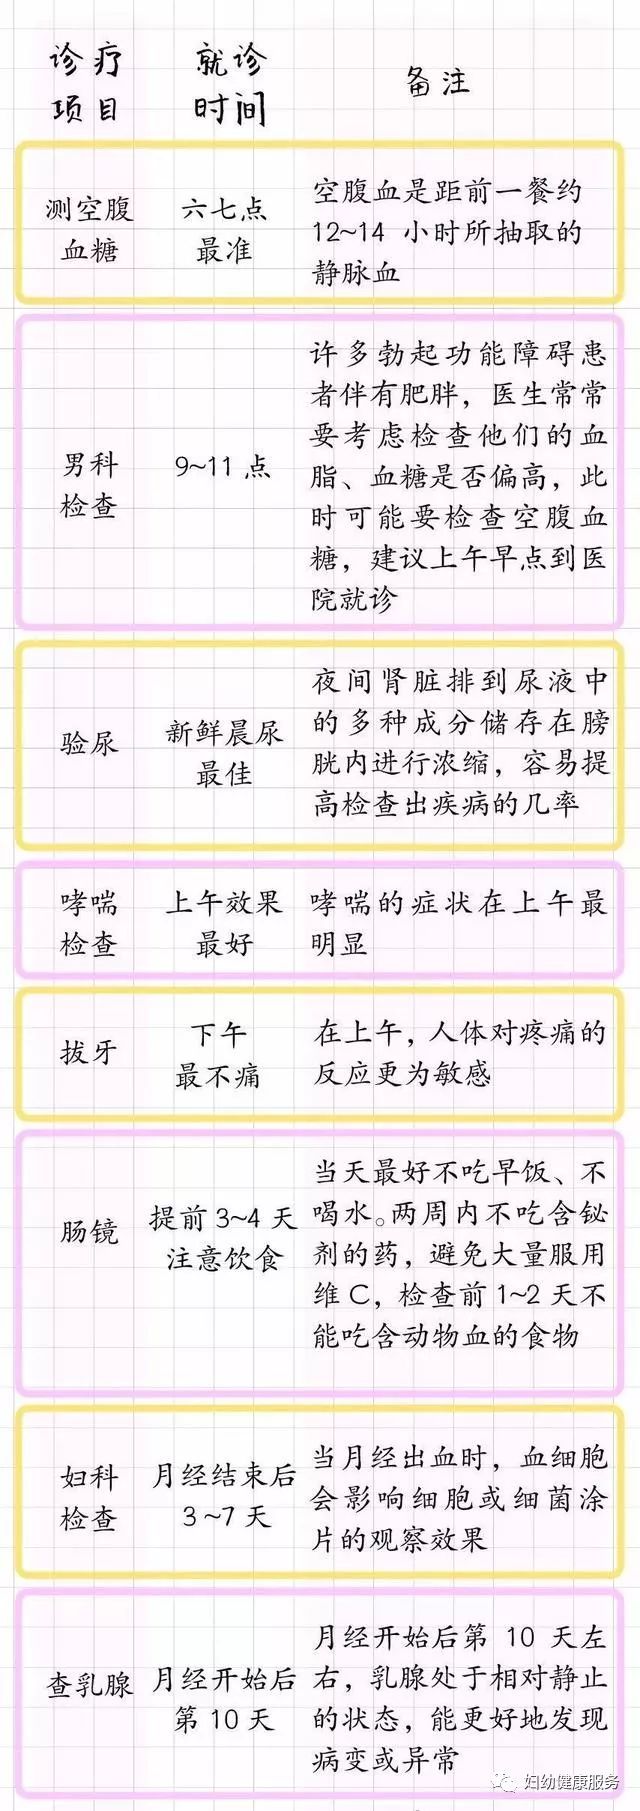 诊疗
项目
就诊
时间
备注
测空腹
血糖
六七点
最准
空腹血是距前一餐约
12~14 小时所抽取的
静脉血
男科
检查
9~11 点
许多勃起功能障碍患
者伴有肥胖，医生常常
要考虑检查他们的血
脂、血糖是否偏高，此
时可能要检查空腹血
糖，建议上午早点到医
院就诊
验尿
新鲜晨尿
最佳
夜间肾脏排到尿液中
的多种成分储存在膀
胱内进行浓缩，容易提
高检查出疾病的几率
哮喘
检查
上午效果
最好
哮喘的症状在上午最
明显
拔牙
下午
最不痛
在上午，人体对疼痛的
反应更为敏感
肠镜
提前3~4 天
注意饮食
当天最好不吃早饭、不
喝水。两周内不吃含铋
剂的药，避免大量服用
维 C，检查前1~2 天不
能吃含动物血的食物
妇科
检查
月经结束后
3~7 天
当月经出血时，血细胞
会影响细胞或细菌涂
片的观察效果
查乳腺
月经开始后
第 10 天
月经开始后第 10 天左
右，乳腺处于相对静止
的状态，能更好地发现
病变或异常
妇幼健康服务